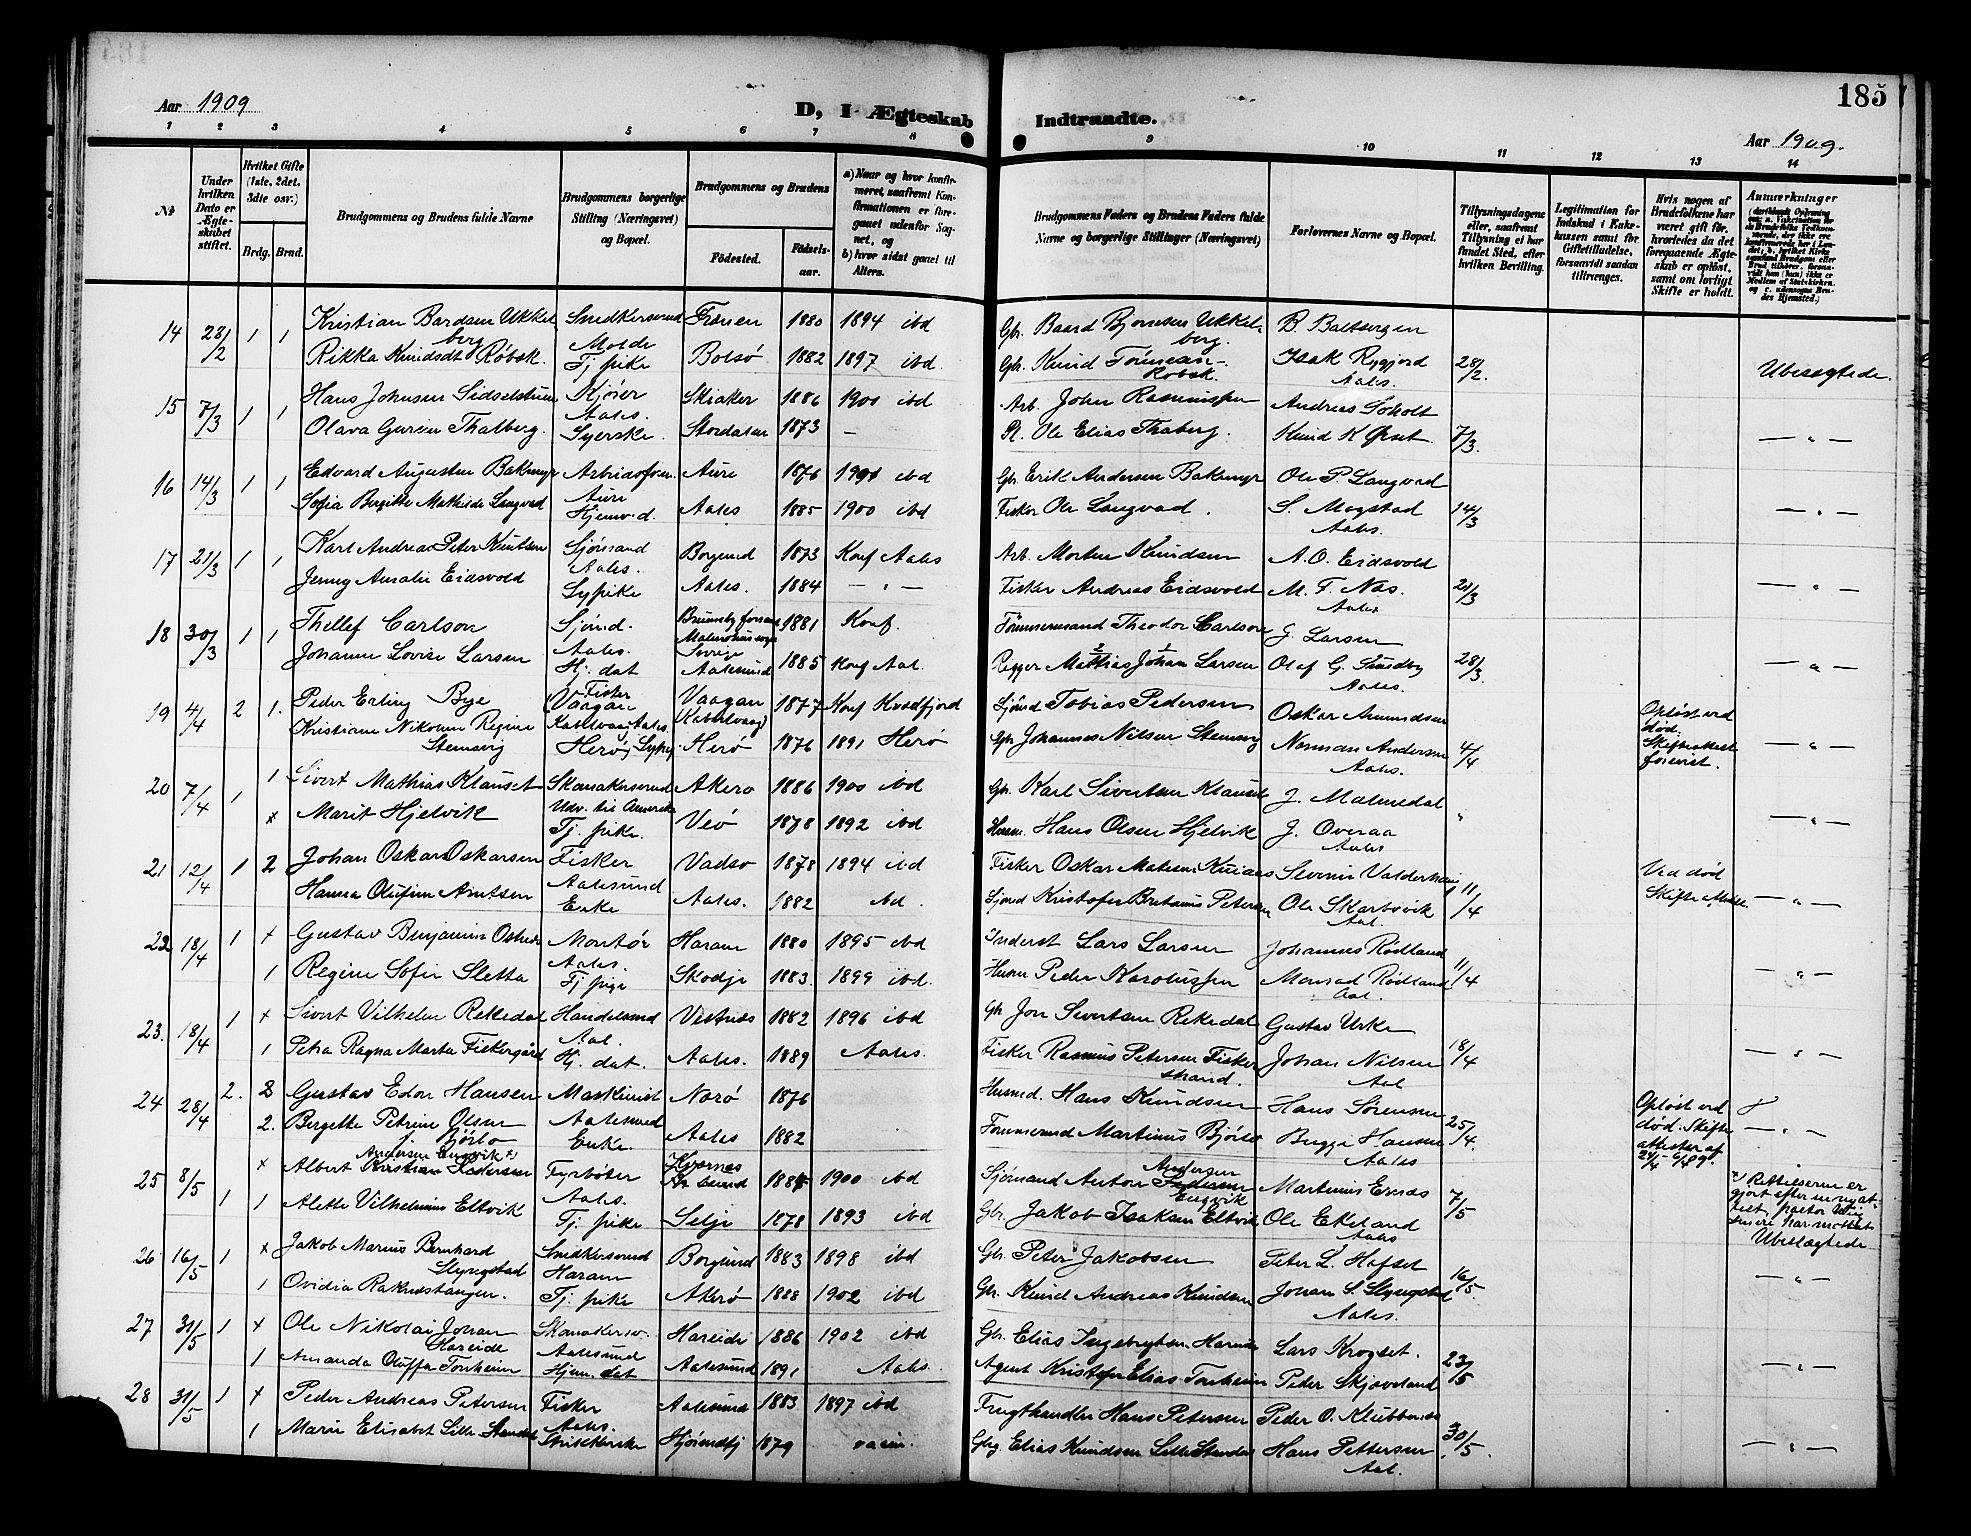 185
Aar 1909
D, I Ægteskab Indtraadte.
Aar 1909.
1 2 3 4 5 6 7 8 9 10 11 12 13 14
Nr
Under hvilken Dato er Ægteskabet stiftet.
Hvilket Gifte (1ste, 2det, 3die osv.)
Brdg. Brud.
Brudgommens og Brudens fulde Navne
Brudgommens borgerlige Stilling (Næringsvei) og Bopæl.
Brudgommens og Brudens
Fødested. Fødselsaar.
a) Naar og hvor konfirmeret, saafremt Konfirmationen er foregaaet udenfor Sognet, og
b) hvor sidst gaaet til Alters.
Brudgommens Faders og Brudens Faders fulde Navne og borgerlige Stillinger (Næringsvei)
Forlovernes Navne og Bopæl.
Tillysningsdagene eller, saafremt Tillysning ei har fundet Sted, efter hvilken Bevilling.
Legitimation for Indskud i Enkekassen samt for Giftetilladelse, forsaavidt saadan tiltrænges.
Hvis nogen af Brudefolkene har været gift før, hvorledes da det foregaaende Ægteskab er opløst, samt om lovligt Skifte er holdt.
Anmærkninger
14 28/2 1 1 Kristian Bardsen Ukkelberg Snedkersvend Molde Frænen 1880 1894 ibd Gbr. Baard Bjørnsen Ukkelberg. B. Baltzersen
Rikka Knudsdt Røbæk Tj. pike Bolsø 1882 1897 ibd Gbr. Knud Røbæk. Isak Rygjord Aales. 28/2. Ubeslægtede
15 7/3 1 1 Hans Johnsen Kjører Aales. Skiaker 1886 1900 ibd Arb. John Rasmussen Andreas Soholt
Olava Gurine Thalberg. Syerske Stordalen 1873 — Ole Elias Thaberg. Knud K Øpset. 7/3. — " —
16 14/3 1 1 Edvard Augustin Bakmyr Arbeidsform. Aure Aure 1876 1901 ibd Gbr Erik Andersen Bakmyr Ole P. Langvad
Sofia Bergitte Mathilde Langvad Hjemv.d. Aales 1885 1900 ibd Fisker Ole Langvad. S. Mogstad Aales. 14/3 — " —
17 21/3 1 1 Karl Andreas Peter Knutsen Sjømand Aales. Borgund 1873 Konf Aales Arb. Morten Knudsen A. O. Eidsvold
Jenny Amalie Eidsvold Sypike Aales. 1884 — " — Fisker Andreas Eidsvold M. F. Næs. Aales 21/3 — " —
18 30/3 1 1 Thellef Carlson Sjømd. Aales. Malmøhus Sverige 1881 Konf. Tømmermand Theodor Carlson J. Larsen
Johanne Lovise Larsen Hj. dat Aalesund 1885 Konf Aal. Rigger Mathias Johan Larsen Olaf G. Sundby Aales. 28/3. — " —
19 4/4 2 1. Peder Erling Bye Fisker Vaagan Kabelvaag Aales. Vaagan (Kabelvaag) 1877 Konf Kvædfjord Sjømd Tobias Pedersen Oskar Amundsen Opløst ved død. Skifteattest forevist.
Kristiane Nikoline Regine Stensvig Herø, Sypig. Herø 1876 1891 Herø Gbr Johannes Nilsen Stensvig Norman Andersen Aales. 4/4 — " —
20 7/4 1 1 Sivert Mathias Klauset Skomakersvend Udv. til Amerika Akerø 1886 1900 ibd Gbr. Karl Sivertsen Klauset J. Malmedal
x Marit Hjelvik Tj. pike. Veø 1878 1892 ibd Husm. Hans Olsen Hjelvik J. Overaa Aales " — " —
21 12/4 1 2 Johan Oskar Oskarsen Fisker Aalesund Vadsø 1878 1894 ibd Fisker Oskar Valderhaug Ved død
Hanna Olufine Arntsen Enke Aales. 1882 ibd. Sjømd Kristofer Petersen Ole Skarbøvik Aal. 11/4 Skifteattest. — " —
22 18/4 1 x Gustav Benjamin Montør Aales. Haram 1880 1895 ibd Inderst Lars Larsen Johannes Rødland
1 Regine Sofie Sletta Tj pige Skodje 1883. 1899 ibd. Husm Peder Karolussen Monrad Rødland Aal. 11/4 — " —
23. 18/4 1 x Sivert Vilhelm Rekkedal Handelsmd Aal. Vestnes 1882 1896 ibd Gbr. Jon Sivertsen Rekedal Gustav Urke
1 Petra Ragna Marta Fiskergård Hj. dat. Aales. 1889 Aales. Fisker Rasmus Petersen Fiskerstrand. Johan Nilsen Aal 18/4 — " —
24 28/4 2. 2 Gustav Edon Hansen Maskinist Aalesund Norø 1876 Husmd. Hans Knudsen Hans Sørensen Opløst ved død. Skifteattester af
2. Bergitte Petrine Olsen Bjørlo Enke Aales 1882 Tømmermd Martinus Bjørlo Bugge Hansen Aales 25/4. — " —
25 8/5 x Albert Kristian Pedersen Andersen Engvik x) Fyrbøter Aales. Kvernes 1881 1900 ibd Sjømand Anton Andersen Engvik Martinus Ernæs x) Rettelserne er gjort efter
1 1 Alette Vilhelmine Eltvik Tj. pike Selje 1878 1893 ibd Gbr. Jakob Isaksen Eltvik Ole Ekeland Aales 7/5 Ubeslægtede
26 16/5 1 x Jakob Marius Bernhard Slyngstad Snedkersvend Haram Borgund 1883 1898 ibd Gbr. Peter Jakobsen Peter L. Hofset
1 Ovidia Raknestangen. Tj. pike Akerø 1888 1902 ibd Gbr. Knud Andreas Knudsen Johan S. Slyngstad Aales. 16/5. — " —
27 31/5 1 x Ole Nikolai Johan Hareide Skomakersv. Aalesund Hareide 1886 1902 ibd Gbr. Elias Ingebrigtsen Hareide Lars Krogset.
1 Amanda Oluffa Tonheim Hjem. dat Aalesund 1891 Aales. Agent Kristofer Elias Tonheim Peder Skjaveland 23/5 — " —
28 31/5 1 x Peder Andreas Petersen Fisker Aales. Aalesund 1883 1897 ibd Frugthandler Hans Petersen Peder O. Klubbenes
1 Marie Elisabet Lille Standal Hjørundfj 1879 Gbr Elias Knudsen Lille Standal Hans Pettersen Aal. 30/5. — " —